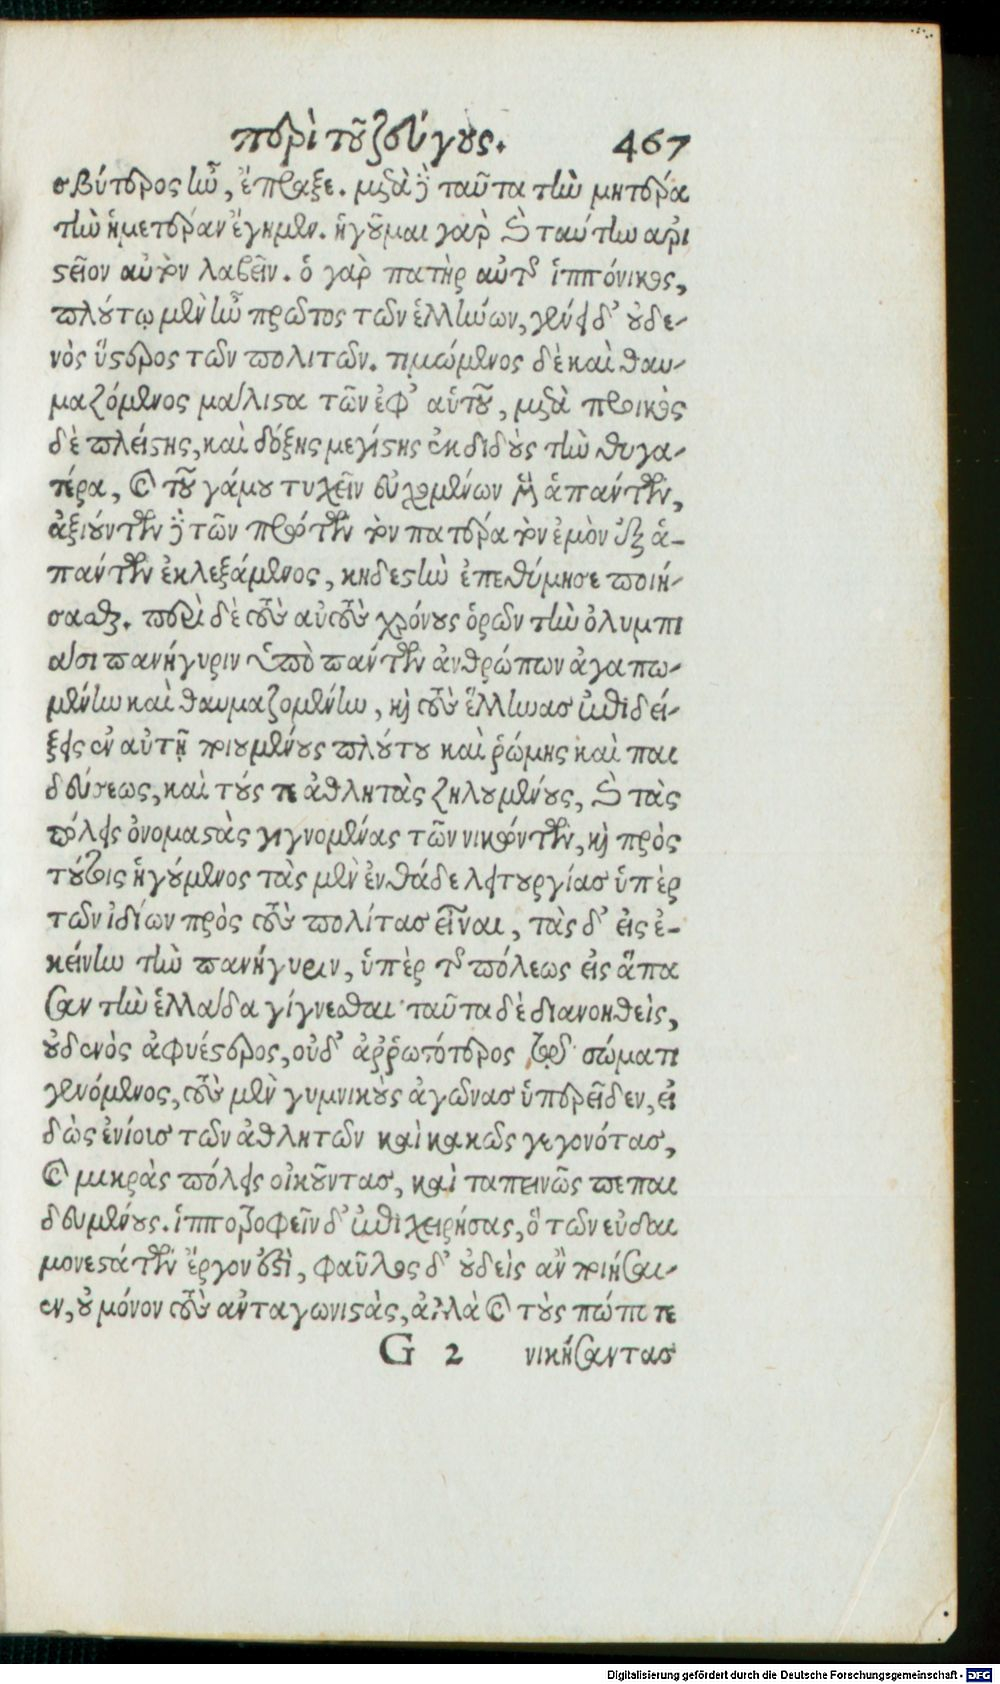 περὶ τοῦ ζεύγους. 467
σβύτερος ἦν, ἔπραξε. μετὰ δὲ ταῦτα τὴν μητέρα
τὴν ἡμετέραν ἔγημεν. ἡγοῦμαι γὰρ καὶ ταύτην ἀρι
στεῖον αὐτὸν λαβεῖν. ὁ γὰρ πατὴρ αὐτῆς ἱππόνικος,
πλούτῳ μὲν ἦν πρῶτος τῶν ἑλλήνων, γένει δ' οὐδε-
νὸς ὕστερος τῶν πολιτῶν. τιμώμενος δὲ καὶ θαυ-
μαζόμενος μάλιστα τῶν ἐφ' αὑτοῦ, μετὰ προικὸς
δὲ πλείστης, καὶ δόξης μεγίστης ἐκδιδοὺς τὴν θυγα-
τέρα, καὶ τοῦ γάμου τυχεῖν εὐχομένων μὲν ἁπάντων,
ἀξιούντων δὲ τῶν πρώτων τὸν πατέρα τὸν ἐμὸν ἐξ ἁ-
πάντων ἐκλεξάμενος, κηδεστὴν ἐπεθύμησε ποιή-
σασθαι. περὶ δὲ τοὺς αὐτοὺς χρόνους ὁρῶν τὴν ὀλυμπι
άσι πανήγυριν ὑπὸ πάντων ἀνθρώπων ἀγαπω-
μένην καὶ θαυμαζομένην, καὶ τοὺς ἕλληνας ἐπίδει-
ξεις ἐν αὐτῇ ποιουμένους πλούτου καὶ ῥώμης καὶ παι
δεύσεως, καὶ τούς τε ἀθλητὰς ζηλουμένους, καὶ τὰς
πόλεις ὀνομαστὰς γιγνομένας τῶν νικώντων, καὶ πρὸς
τούτοις ἡγούμενος τὰς μὲν ἐνθάδε λειτουργίας ὑπὲρ
τῶν ἰδίων πρὸς τοὺς πολίτας εἶναι, τὰς δ' εἰς ἐ-
κείνην τὴν πανήγυριν, ὑπὲρ τῆς πόλεως εἰς ἅπα
σαν τὴν ἑλλάδα γίγνεσθαι· ταῦτα δὲ διανοηθεὶς,
οὐδενὸς ἀφυέστερος, οὐδ' ἀῤῥωστότερος τῷ σώματι
γενόμενος, τοὺς μὲν γυμνικοὺς ἀγῶνας ὑπερεῖδεν, εἰ
δὼς ἐνίους τῶν ἀθλητῶν καὶ κακῶς γεγονότας,
καὶ μικρὰς πόλεις οἰκοῦντας, καὶ ταπεινῶς πεπαι
δευμένους. ἱπποτροφεῖν δ' ἐπιχειρήσας, ὃ τῶν εὐδαι
μονεστάτων ἔργον ἐστὶ, φαῦλος δ' οὐδεὶς ἂν ποιήσαι-
εν, οὐ μόνον τοὺς ἀνταγωνιστὰς, ἀλλὰ καὶ τοὺς πώποτε
G 2 νικήσαντας
Digitalisierung gefördert durch die Deutsche Forschungsgemeinschaft - DFG